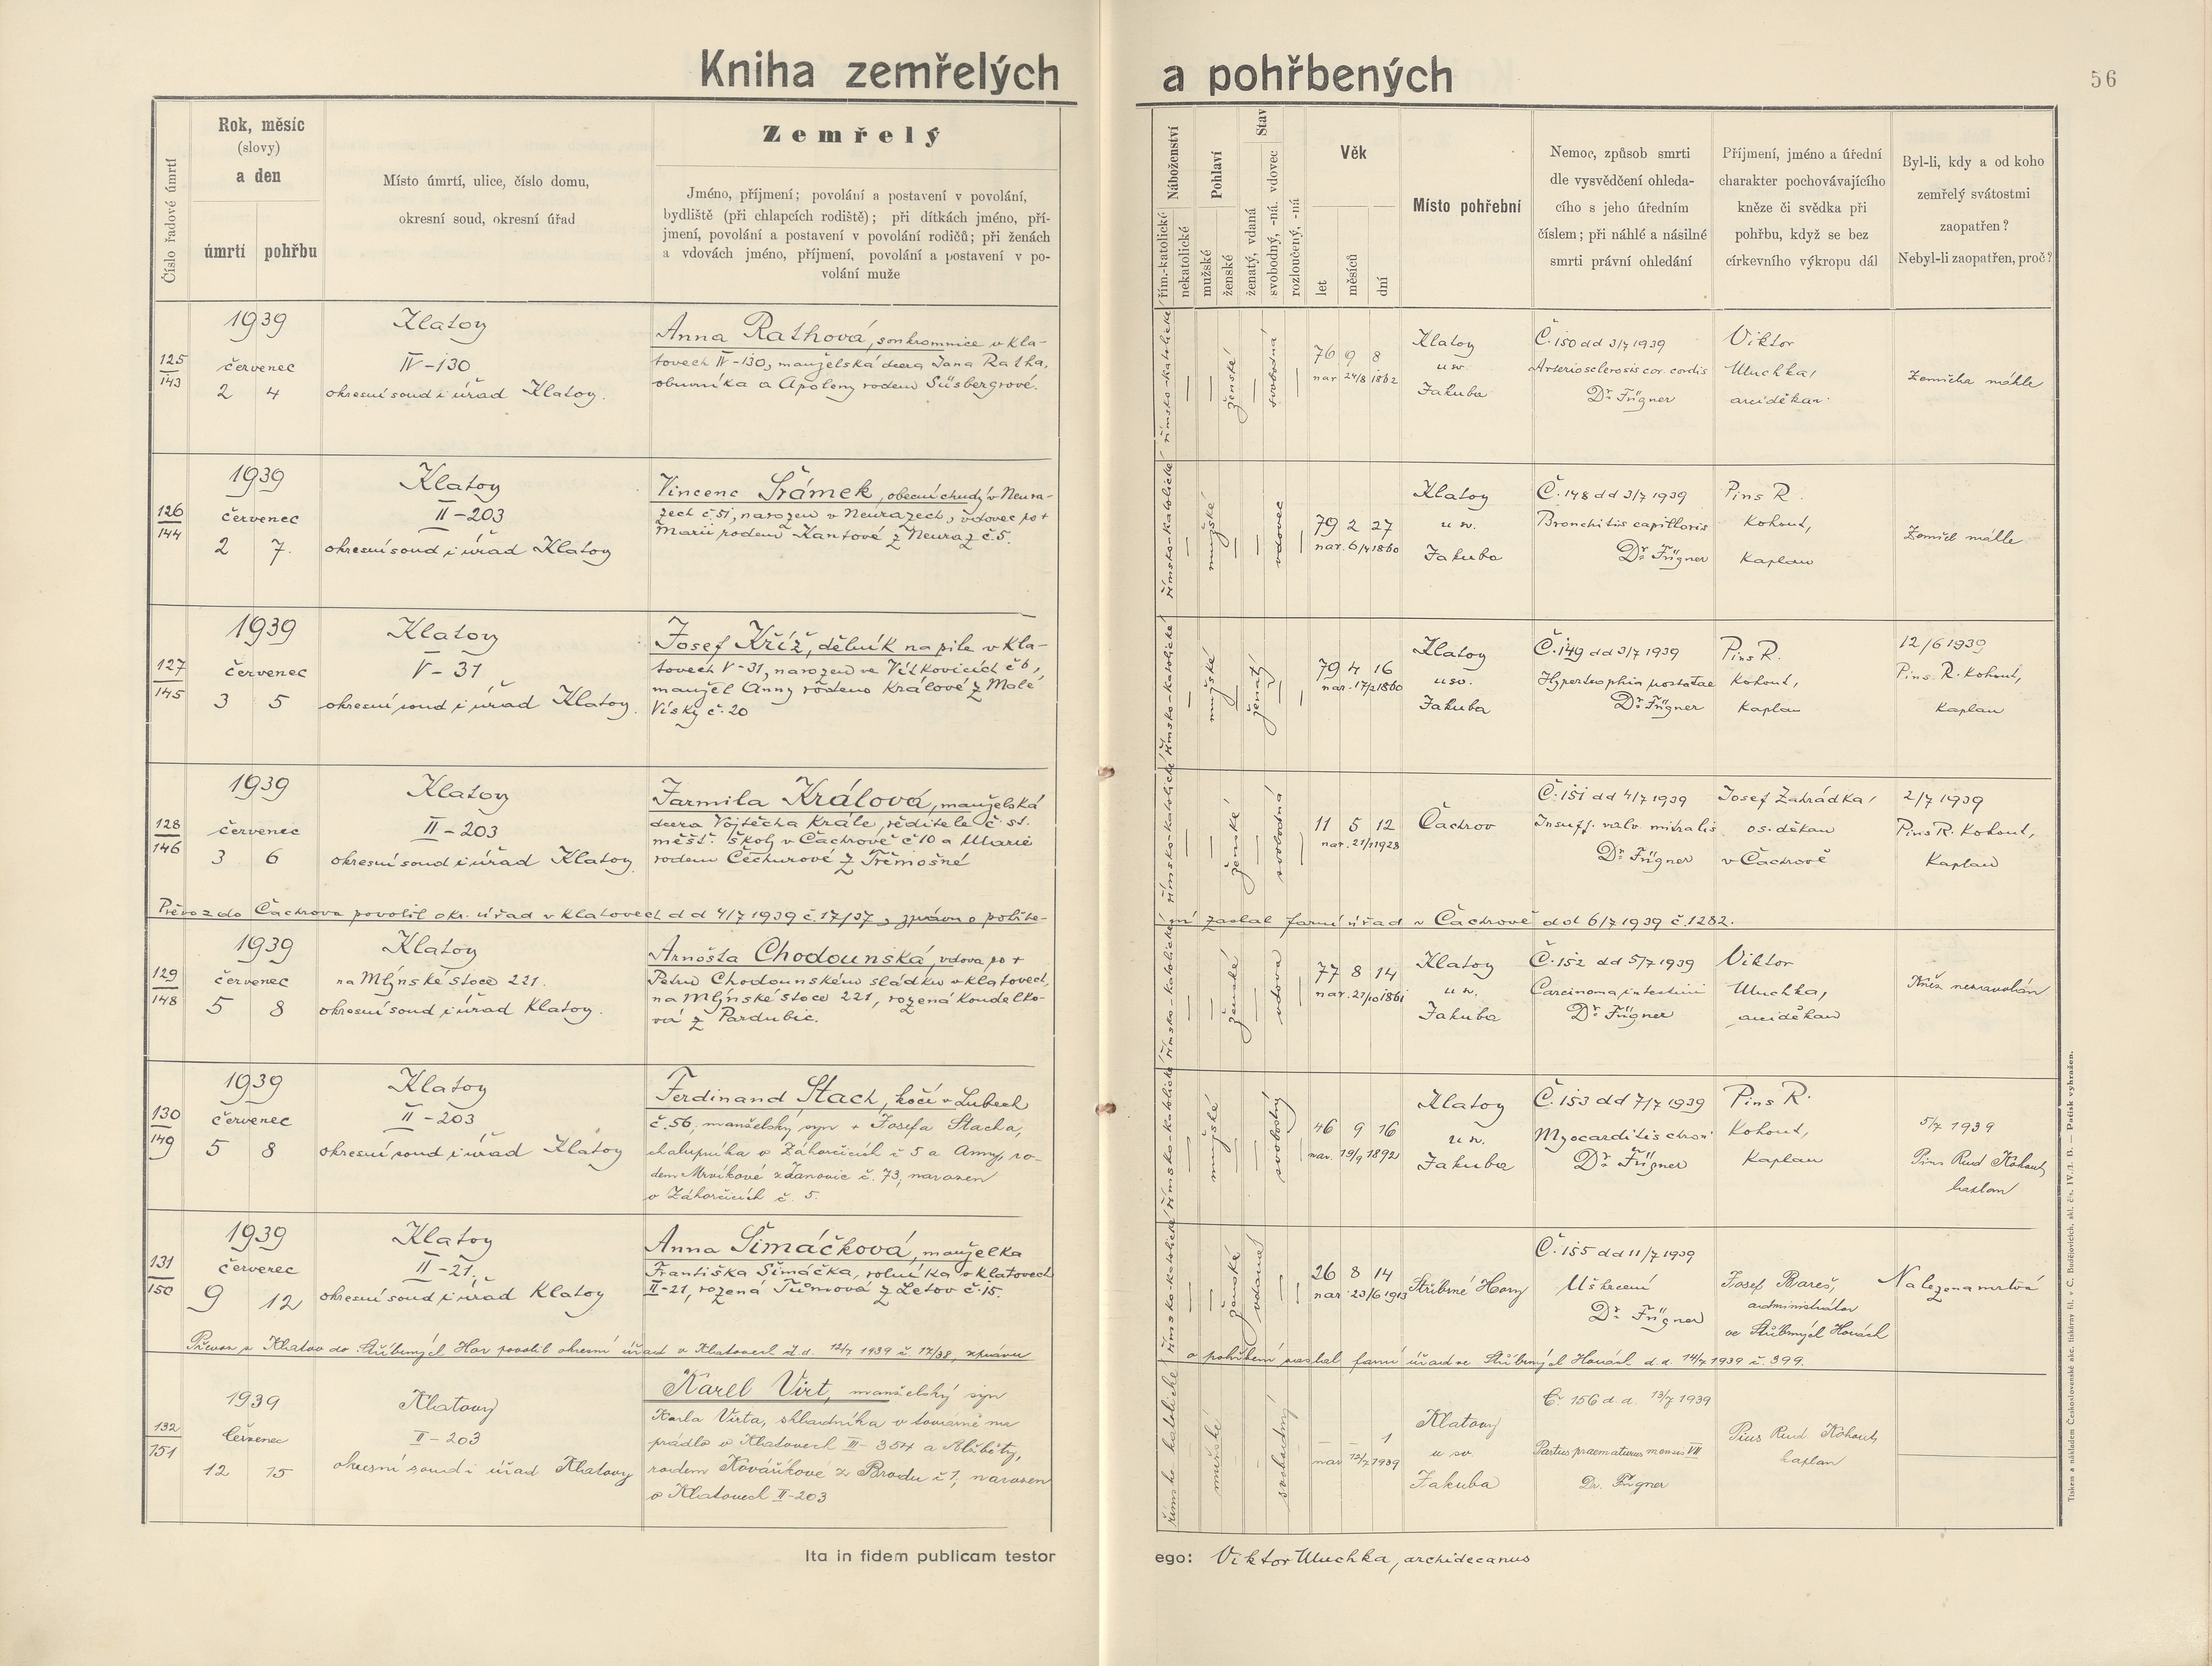 Kniha zemřelých a pohřbených
56
Číslo řadové úmrtí
Rok, měsíc
(slovy)
a den
úmrtí
pohřbu
Místo úmrtí, ulice, číslo domu,
okresní soud, okresní úřad
Zemřelý
Jméno, příjmení; povolání a postavení v povolání,
bydliště (při chlapcích rodiště); při dítkách jméno, pří-
jmení, povolání a postavení v povolání rodičů; při ženách
a vdovách jméno, příjmení, povolání a postavení v po-
volání muže
Náboženství
řím.-katolické
nekatolické
Pohlaví
mužské
ženské
Stav
ženatý, vdaná
svobodný, -ná. vdovec
rozloučený, -ná
Věk
let
měsíců
dní
Místo pohřební
Nemoc, způsob smrti
dle vysvědčení ohleda-
cího s jeho úředním
číslem; při náhlé a násilné
smrti právní ohledání
Příjmení, jméno a úřední
charakter pochovávajícího
kněze či svědka při
pohřbu, když se bez
církevního výkropu dál
Byl-li, kdy a od koho
zemřelý svátostmi
zaopatřen?
Nebyl-li zaopatřen, proč?
125
143
1939
červenec
2 4
Klatovy
IV-130
okresní soud i úřad Klatovy.
Anna Rathová, soukromnice v Kla-
tovech IV-130, manželská dcera Jana Ratha,
obuvníka a Apoleny rodem Süsbergrové.
římsko-katolické
ženské
svobodná
76 9 8
nar. 24/8 1862
Klatovy
u sv.
Jakuba
Č. 150 dd 3/7 1939
Arteriosclerosis cor. cordis
Dr. Fügner
Viktor
Muchka,
arciděkan.
Zemřela náhle
126
144
1939
červenec
2 7.
Klatovy
II-203
okresní soud i úřad Klatovy
Vincenc Šrámek, obecní chudý v Neura-
zech č. 51, narozen v Neurazech, vdovec po +
Marii rodem Kantové z Neuraz č. 5.
římsko-katolické
mužské
vdovec
79 2 27
nar. 6/4 1860
Klatovy
u sv.
Jakuba
Č. 148 dd 3/7 1939
Bronchitis capillaris
Dr. Fügner
Pius R.
Kohout,
Kaplan
Zemřel náhle
127
145
1939
červenec
3 5
Klatovy
V-31
okresní soud i úřad Klatovy.
Josef Kříž, dělník na pile v Kla-
tovech V-31, narozen ve Vítkovicích č 6,
manžel Anny rodem Králové z Malé
Vísky č. 20
římsko-katolické
mužské
ženatý
79 4 16
nar. 17/2 1860
Klatovy
u sv.
Jakuba
Č. 149 dd 3/7 1939
Hypertrophia prostatae
Dr. Fügner
Pius R.
Kohout,
Kaplan
12/6 1939
Pius. R. Kohout,
Kaplan
128
146
1939
červenec
3 6
Klatovy
II-203
okresní soud i úřad Klatovy.
Jarmila Králová, manželská
dcera Vojtěcha Krále, ředitele č. st.
měšť. školy v Čachrově č 10 a Marie
rodem Čechurové z Třemošné
římsko-katolické
ženské
svobodná
11 5 12
nar. 21/1 1928
Čachrov
Č. 151 dd 4/7 1939
Insuff. valv. mitralis
Dr. Fügner
Josef Zahrádka,
os. děkan
v Čachrově
2/7 1939
Pius R. Kohout,
Kaplan
Převoz do Čachrova povolil okr. úřad v Klatovech dd 4/7 1939 č. 17/37, zprávu o pohřbe-
ní zaslal farní úřad v Čachrově dd 6/7 1939 č. 1282.
129
148
1939
červenec
5 8
Klatovy
na Mlýnské stoce 221.
okresní soud i úřad Klatovy.
Arnošta Chodounská, vdova po +
Petru Chodounském sládku v Klatovech,
na Mlýnské stoce 221, rozená Koudelko-
vá z Pardubic.
římsko-katolické
ženské
vdova
77 8 14
nar. 21/10 1861
Klatovy
u sv.
Jakuba
Č. 152 dd 5/7 1939
Carcinoma intestini
Dr. Fügner
Viktor
Muchka,
arciděkan
Kněz nezavolán
130
149
1939
červenec
5 8
Klatovy
II-203
okresní soud i úřad Klatovy
Ferdinand Stach, kočí v Lubech
č. 56, manželský syn + Josefa Stacha,
chalupníka v Záhorčicích č 5 a Anny, ro-
dem Mrvíkové z Janovic č. 73, narozen
v Záhorčicích č. 5.
římsko-katolické
mužské
svobodný
46 9 16
nar. 19/9 1892
Klatovy
u sv.
Jakuba
Č. 153 dd 7/7 1939
Myocarditis chron.
Dr. Fügner
Pius R.
Kohout,
Kaplan
5/7 1939
Pius Rud Kohout,
kaplan
131
150
1939
červenec
9 12
Klatovy
II-21.
okresní soud i úřad Klatovy
Anna Šimáčková, manželka
Františka Šimáčka, rolníka v Klatovech
II-21, rozená Tůmová z Letov č. 15.
římsko-katolické
ženské
vdaná
26 8 14
nar. 23/6 1913
Stříbrné Hory
Č. 155 dd 11/7 1939
Uškrcení
Dr. Fügner
Josef Bareš,
administrátor
ve Stříbrných Horách
Nalezena mrtvá
Převoz z Klatov do Stříbrných Hor povolil okresní úřad v Klatovech d. d. 12/7 1939 č. 17/38, zprávu
o pohřbení zaslal farní úřad ve Stříbrných Horách d. d. 14/7 1939 č. 399.
132
151
1939
červenec
12 15
Klatovy
II-203
okresní soud i úřad Klatovy
Karel Virt, manželský syn
Karla Virta, skladníka v továrně na
prádlo v Klatovech III-354 a Alžběty,
rodem Kováříkové z Brodu č 1, narozen
v Klatovech II-203
římsko-katolické
mužské
svobodný
1
nar 12/7 1939
Klatovy
u sv.
Jakuba
Č. 156 d. d. 13/7 1939
Partus praematurus mensis VII
Dr. Fügner
Pius Rud Kohout,
kaplan
Ita in fidem publicam testor ego: Viktor Muchka, archidecanus
Tiskem a nákladem Československé akc. tiskárny fil. v Č. Budějovicích, skl. čís. IV./1. B. — Patisk vyhražen.